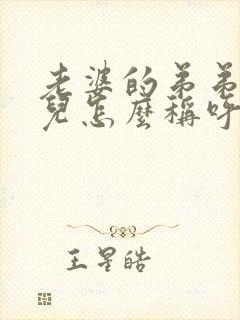 老婆的弟弟
兒怎麼稱呼
王星皓